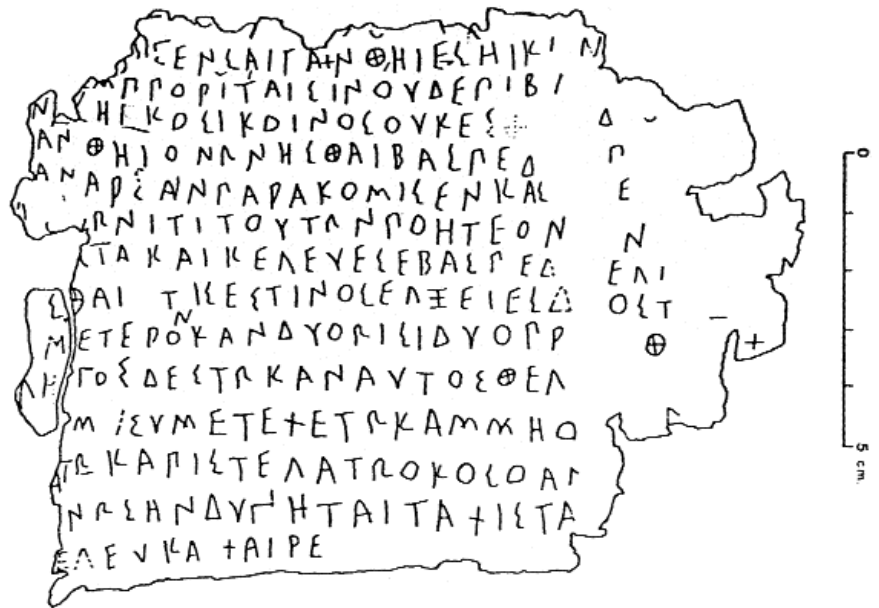 ΣΕΝΣΑΙΓΑΝΘΗΙΕΣΗΙΚΙΝ
ΜΠΟΡΙΤΑΙΣΙΝΟΥΔΕΠΙΒΙ
Ν ΗΣΚΟΣΙΚΟΙΝΟΣΟΥΚΕΣ Δ
ΑΝΘΗΙΟΝΩΝΗΣΘΑΙΒΑΣΠΕΔ Π
ΑΝΑΡΣΑΝΠΑΡΑΚΟΜΙΣΕΝΚΑΣ Ε
ΩΝΙΤΙΤΟΥΤΩΝΠΟΗΤΕΟΝ Ν
ΤΑΚΑΙΚΕΛΕΥΕΣΕΒΑΣΠΕΔ ΕΛΙ
ΣΘΑΙ ΤΙΣΕΣΤΙΝΟΣΕΛΞΕΙΕΣΔ ΟΣΤ
ΜΕΤΕΡΟΝΚΑΝΔΥΟΩΣΙΔΥΟΠΡ Θ Χ
ΗΓΟΣΔΕΣΤΩΚΑΝΑΥΤΟΣΘΕΛ
ΜΙΣΥΜΕΤΕΧΕΤΩΚΑΜΜΗΟ
ΤΩΚΑΠΙΣΤΕΛΑΤΩΟΚΟΣΟΑΝ
ΝΩΣΑΝΔΥΝΗΤΑΙΤΑΧΙΣΤΑ
ΕΛΕΥΚΑΧΑΙΡΕ
0
5 cm.